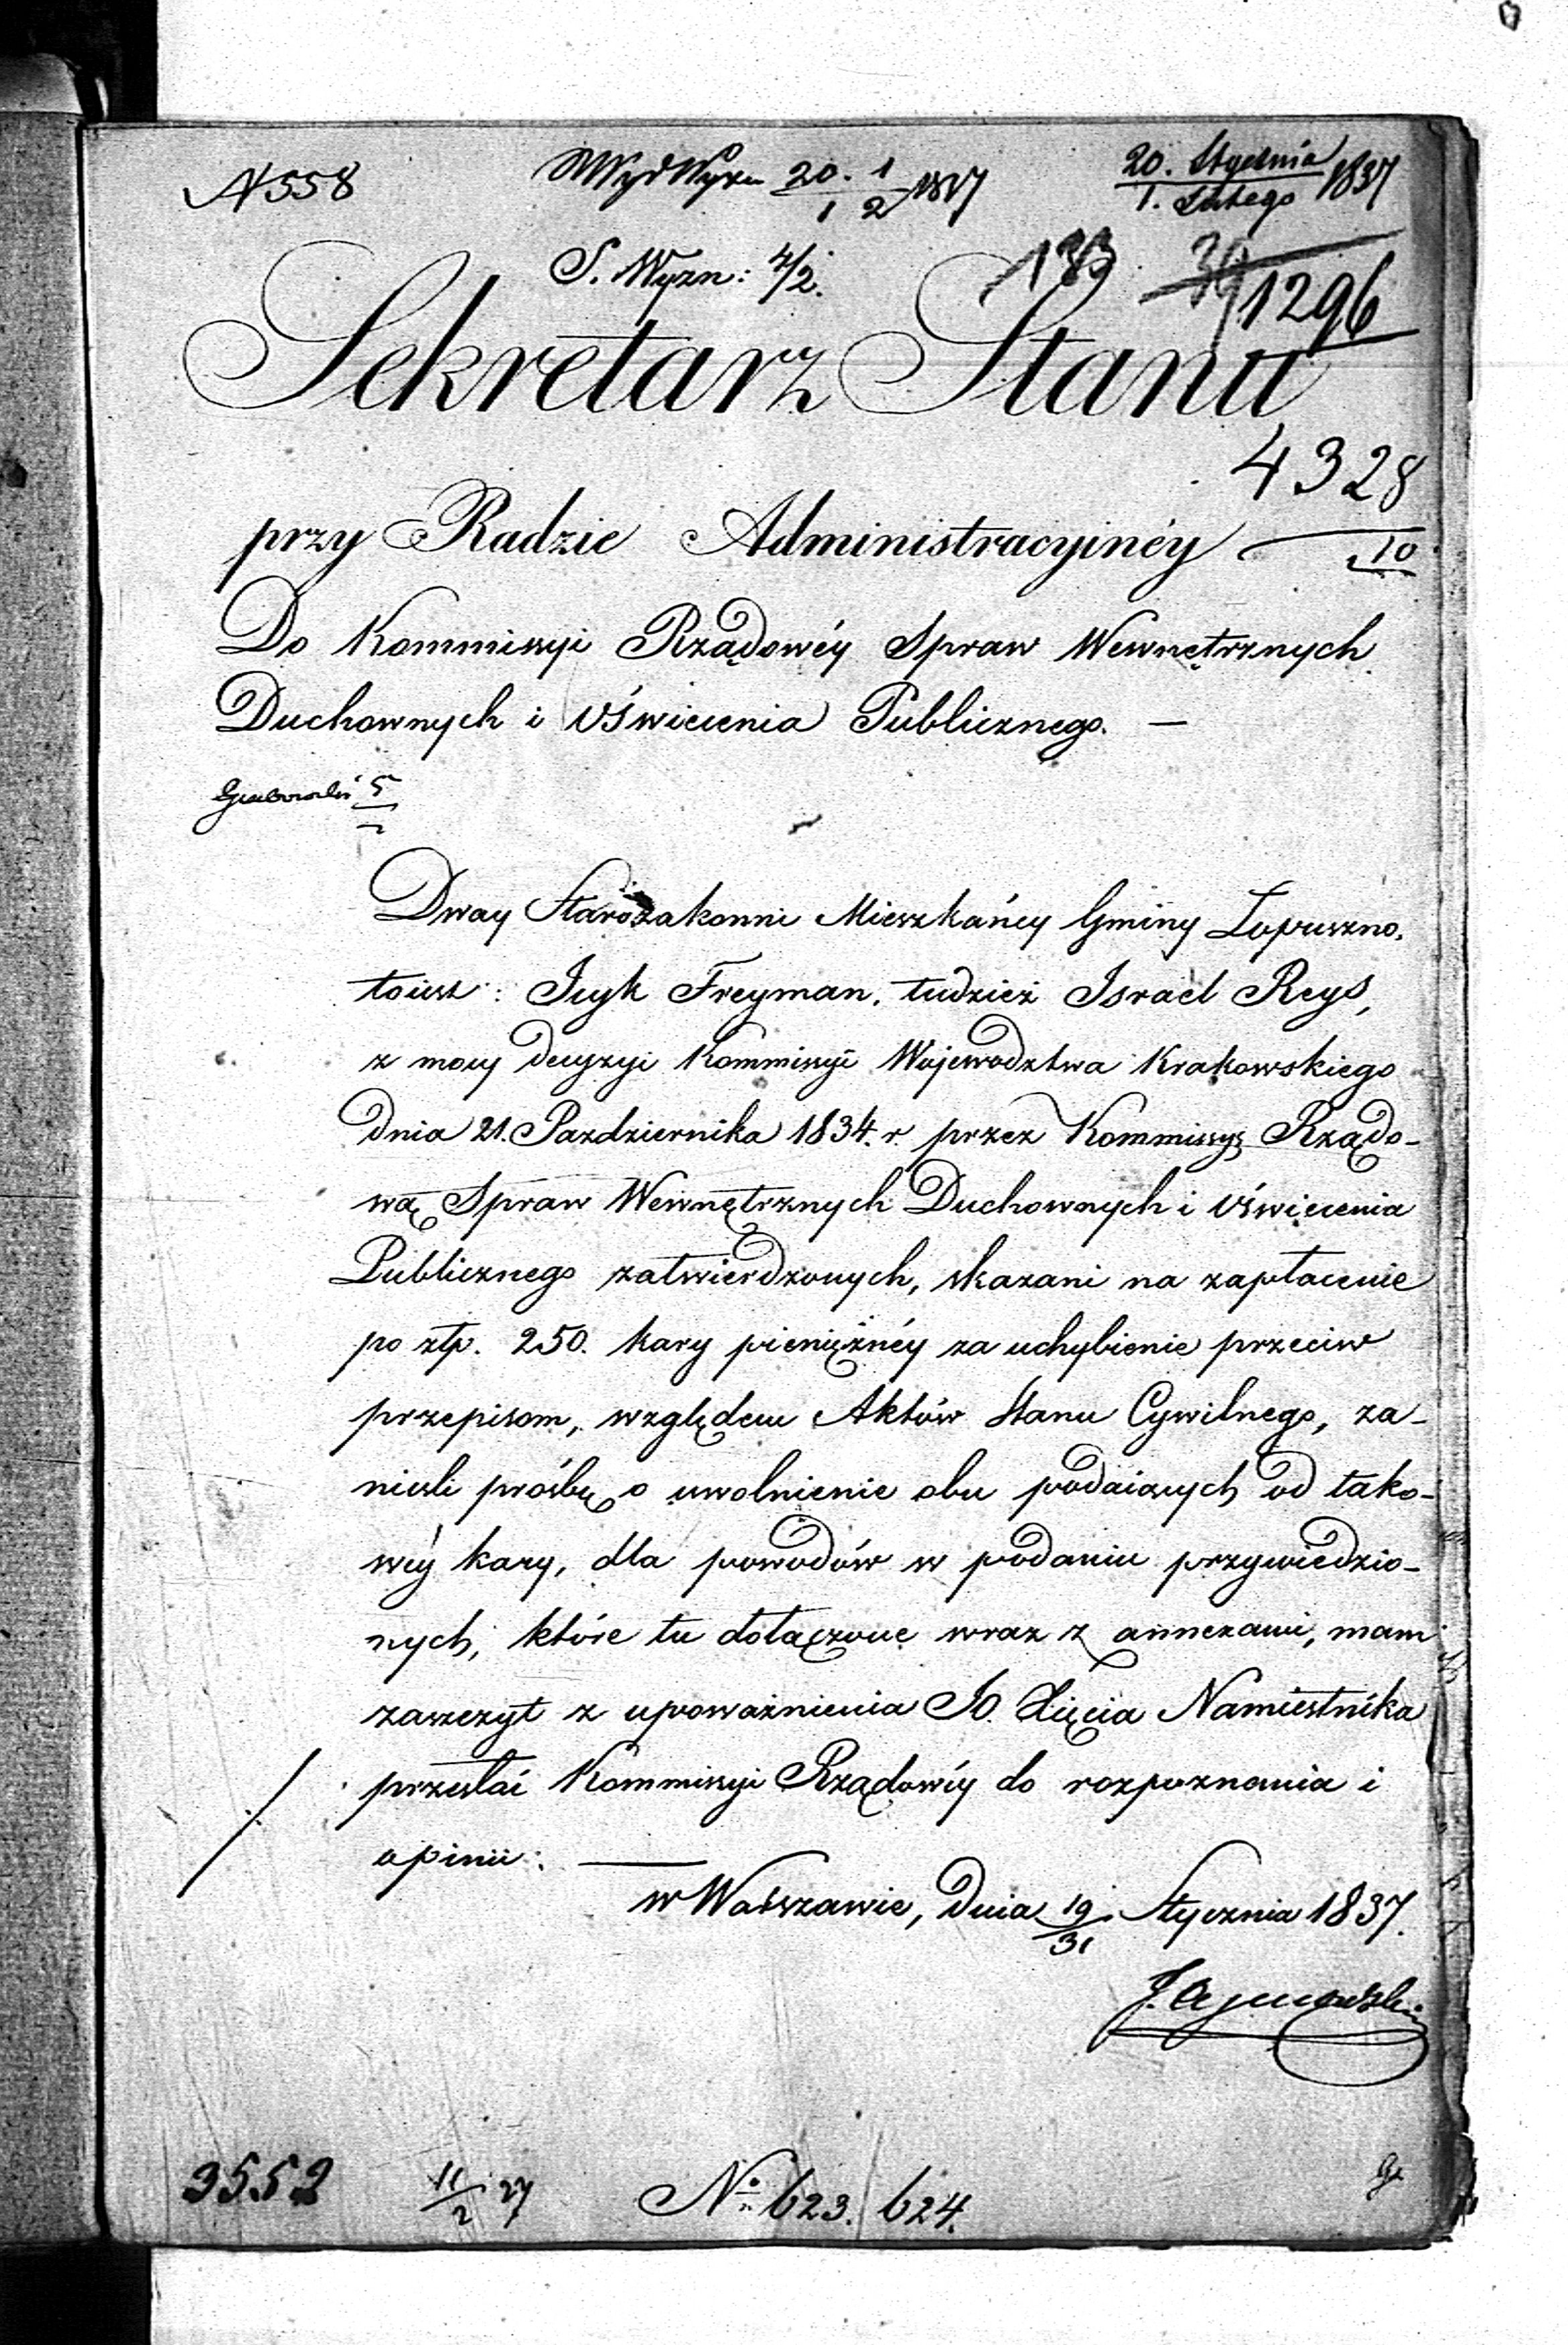 N 558
Wyd Wyzn 20/1 1/2 1837
20. Stycznia / 1. Lutego 1837
S. Wyzn: 4/2.
183
39
1296
Sekretarz Stanu
4328
10
przy Radzie Administracyinéy
Do Kommissyi Rządowéy Spraw Wewnętrznych
Duchownych i Oświecenia Publicznego. —
Grabowski 5/2
Dway Starozakonni Mieszkańcy Gminy Łopuszno.
toiest: Icyk Freyman. tudzież Israel Reys,
z mocy decyzyi Kommissyi Wojewodztwa Krakowskiego
dnia 21. Pazdziernika 1834. r. przez Kommissyą Rządo-
wą Spraw Wewnętrznych Duchownych i Oświecenia
Publicznego zatwierdzonych, skazani na zapłacenie
po złp. 250. kary pieniężnéy za uchybienie przeciw
przepisom, względem Aktów Stanu Cywilnego, za-
nieśli prośbę o uwolnienie obu podaiących od tako-
wéy kary, dla powodów w podaniu przywiedzio-
nych, które tu dołączone wraz z annexami, mam
zaszczyt z upoważnienia JO. Xięcia Namiestnika
przesłać Kommissyi Rządowéy do rozpoznania i
opinii. —
w Warszawie, dnia 19/31 Stycznia 1837.
3552
11/2 37
No 623. 624.